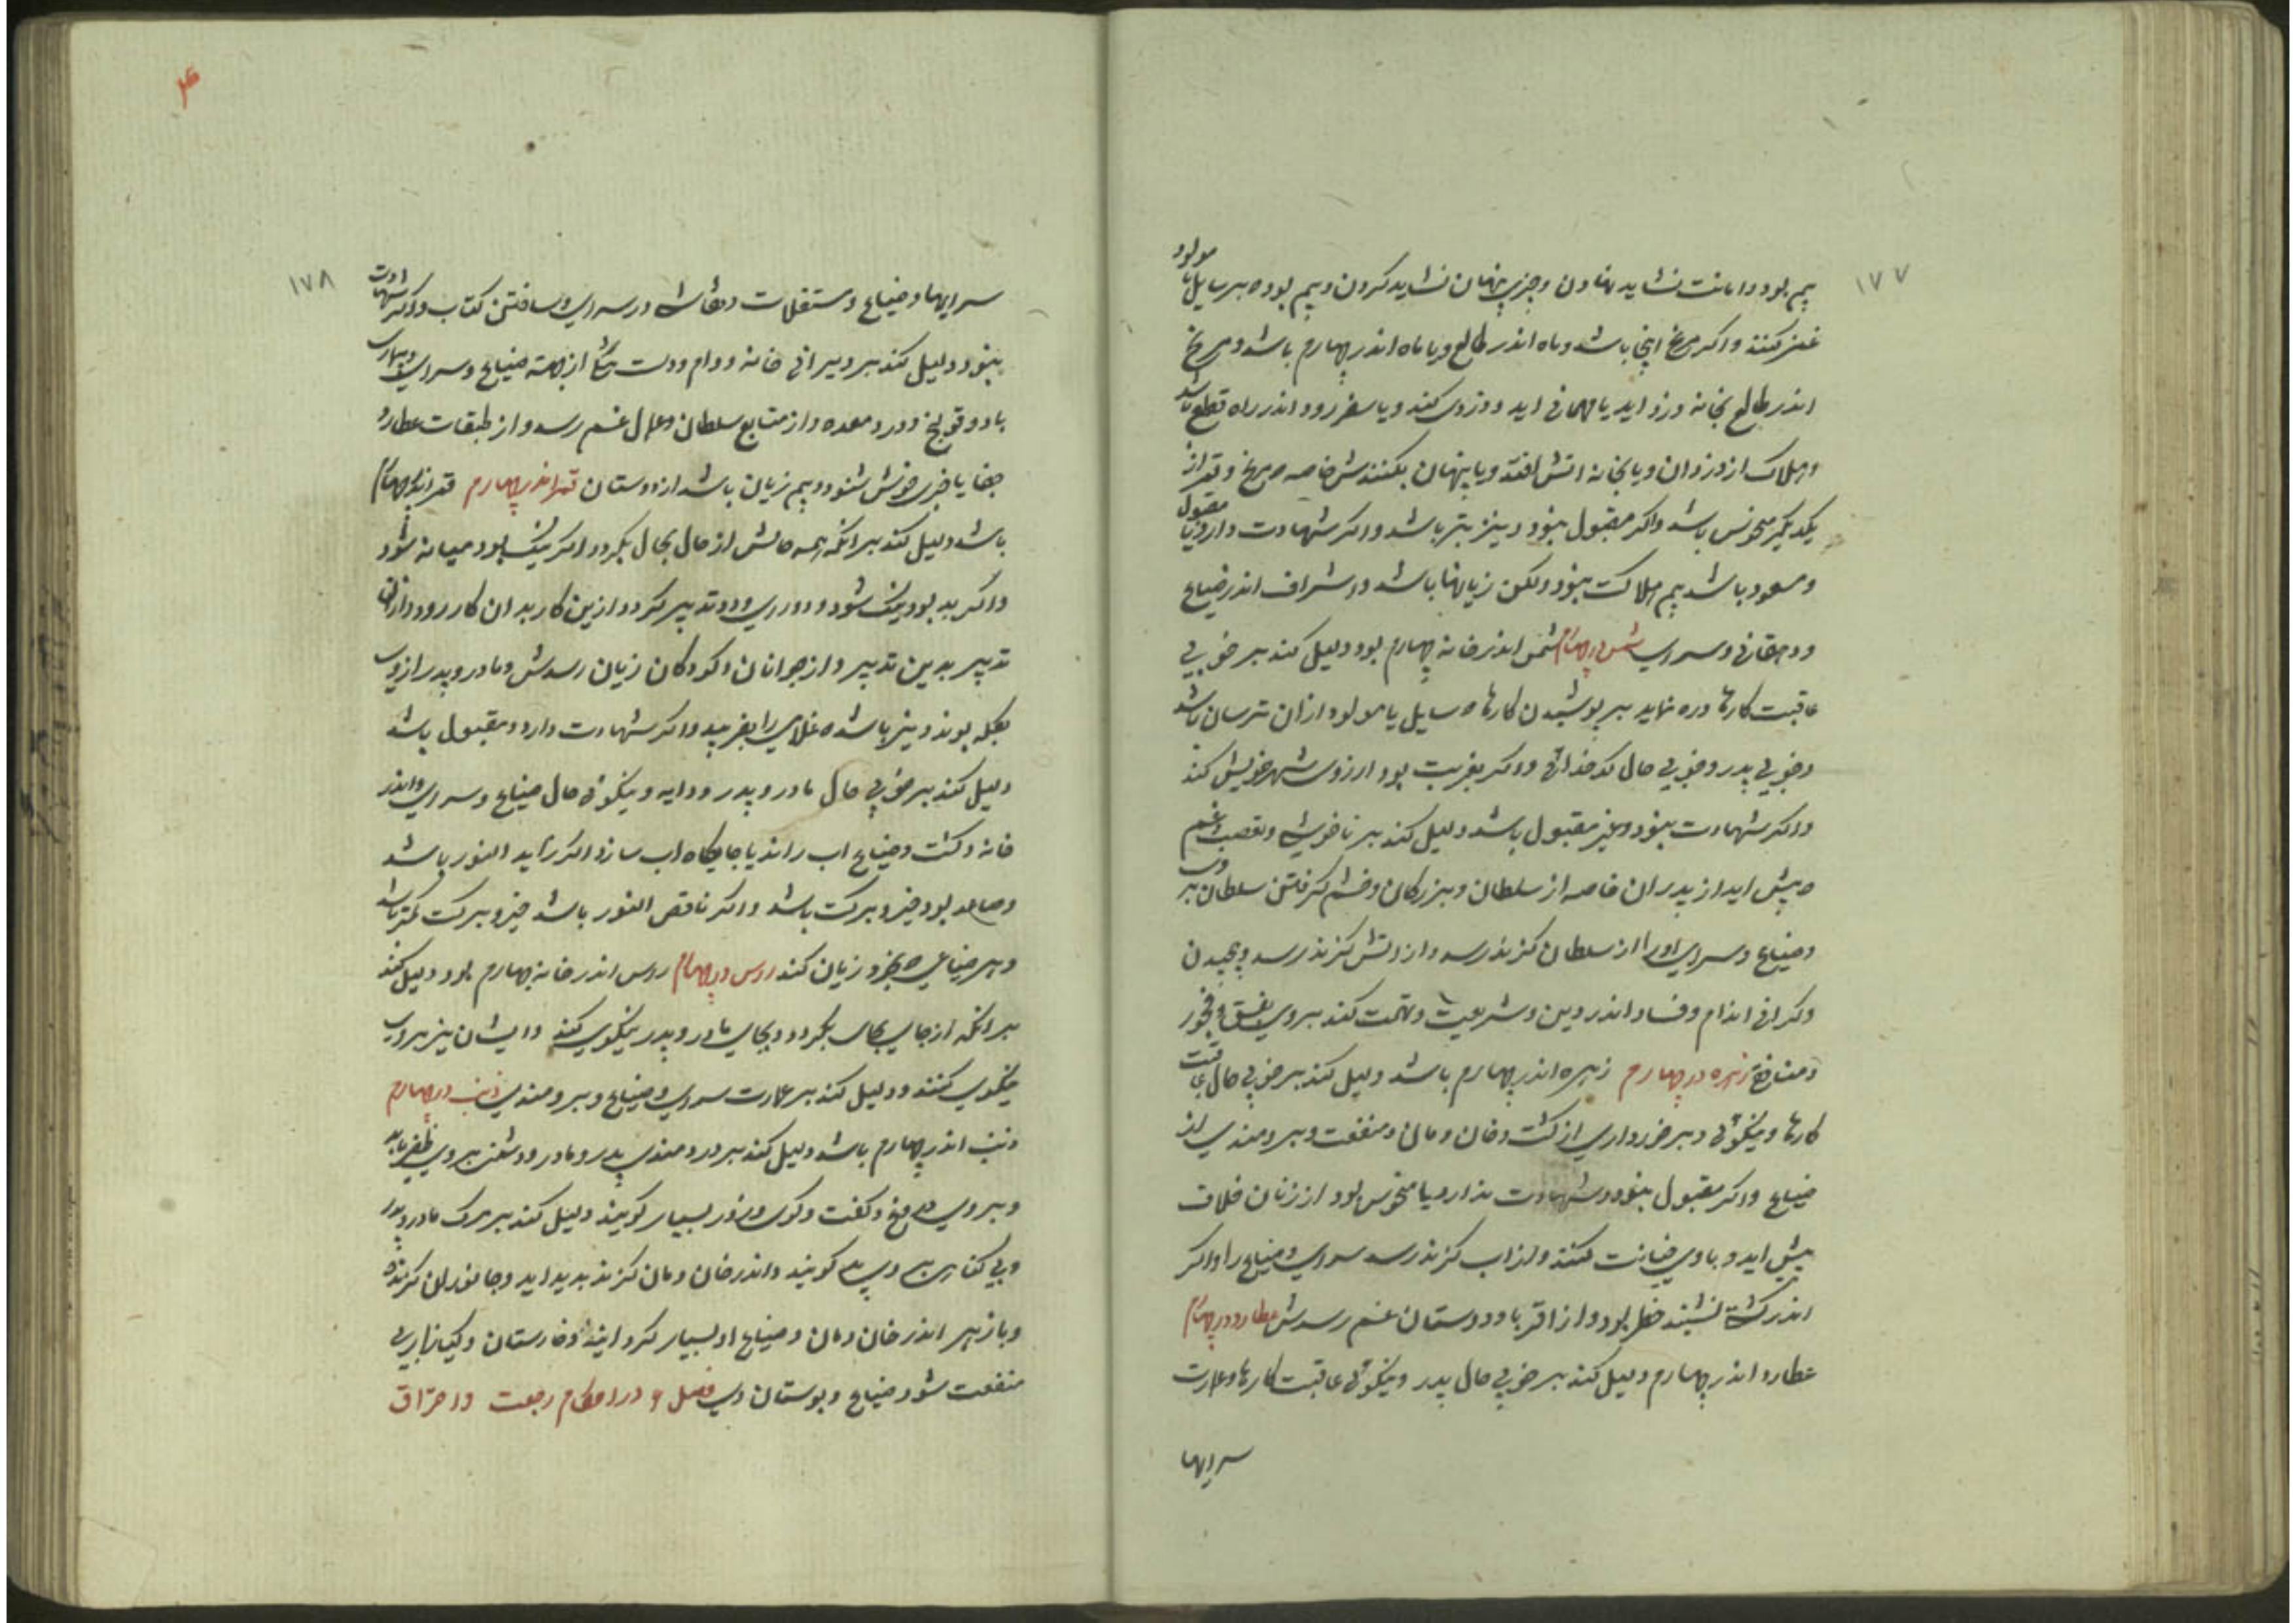 ۱۷۷
بیم بود و امانت نشاید نهادن و چیزی پنهان نشاید کردن و بیم بود که بر سایل یا مولود
غمز کنند و اکر مریخ اینجا باشد و ماه اندر طالع و یا ماه اندر چهارم باشد و مریخ
اندر طالع بخانه دزد اید یا مهمانی اید و دزدی کند و یا سفر رود اندر راه قطع باشد
و هلاک از دزدان و یا بخانه اتش افتد و یا پنهان بکشندش خاصه که مریخ و قمر از
یکدیکر منحوس باشد و اکر مقبول نبود نیز بتر باشد و اکر شهادت دارد یا مقبول
و مسعود باشد بیم هلاکت نبود ولکن زیانها باشد و اشراف اندر ضیاع
و دهقانی و سرای شمس در چهارم شمس اندر خانه چهارم بود دلیل کند بر خوبی
عاقبت کارها و ره نماید بر پوشیدن کارها که سایل یا مولود از ان ترسان باشد
و خوبی پدر و خوبی حال کدخدائی و اکر بغربت بود ارزوی شهر خویش کند
و اکر شهادت نبود و غیر مقبول باشد دلیل کند بر ناخوشی و تعصب و غم
که پیش اید از پدران خاصه از سلطان و بزرکان و خشم کرفتن سلطان بر وی
و ضیاع و سرای او را از سلطان کزند رسد و از اتش کزند رسد و پیچیدن
و کرانی اندام و فساد اندر دین و شریعت و تهمت کند بر وی بفسق و فجور
و منازع زهره در چهارم زهره اندر چهارم باشد دلیل کند بر خوبی حال عاقبت
کارها و نیکوئی و برخورداری از کشت و خان و مان و منفعت و برومندی از
ضیاع و اکر مقبول نبود و شهادت ندارد یا منحوس بود از زنان خلاف
پیش اید و با وی خیانت کنند و از اب کزند رسد سرای و ضیاع را و اکر
اندر کشتی نشیند خطر بود و از اقربا و دوستان غم رسدش عطارد در چهارم
عطارد اندر چهارم دلیل کند بر خوبی حال پدر و نیکوئی عاقبت کارها و عمارت
سرایها
۴
۱۷۸
سرایها و ضیاع و مستغلات و نقاشی در سرای و ساختن کتاب و اکر شهادت
نبود دلیل کند بر ویرانی خانه و وام و دست تنکی از جهة ضیاع و سرای و بیماری
باد و قولنج و درد معده و از متابع سلطان و عمال غم رسد و از طبقات عطارد
جفا یا خبری خوش شنود و بیم زیان باشد از دوستان قمر اندر چهارم قمر اندر چهارم
باشد دلیل کند بر انکه همه حالش از حال بحال بکردد اکر نیک بود میانه شود
و اکر بد بود نیک شود و دو رای و دو تدبیر کردد از این کار بدان کار رود و از ان
تدبیر بدین تدبیر و از جوانان و کودکان زیان رسدش و مادر و پدر از وی
بکله بوند و نیز باشد که غلامی را بفریبد و اکر شهادت دارد و مقبول باشد
دلیل کند بر خوبی حال مادر و پدر و دایه و نیکوئی حال ضیاع و سرای و اندر
خانه و کشت و ضیاع اب راند یا جایکاه اب سازد اکر زاید النور باشد
و صاعد بود خیر و برکت باشد و اکر ناقص النور باشد خیر و برکت کمتر باشد
و بهر ضیاعی که بخرد زیان کند راس در چهارم راس اندر خانه چهارم بود دلیل کند
بر انکه از جای بجای بکردد و بجای مادر و پدر نیکوی کند و ایشان نیز بر وی
نیکوی کنند و دلیل کند بر عمارت سرای و ضیاع و برومندی ذنب در چهارم
ذنب اندر چهارم باشد دلیل کند بر دردمندی پدر و مادر و دشمن بر وی ظفر یابد
و بر وی دروغ و کفت و کوی و زور بسیار کویند دلیل کند بر مرک مادر و پدر
کویند و اندر خان و مان کزند بدید اید و جانوران کزنده
و باز هر اندر خان و مان و ضیاع او بسیار کرد ایند و خارستان و کیازار بی
منفعت شود ضیاع و بوستان وی فصل ۶ در احکام رجعت و احتراق